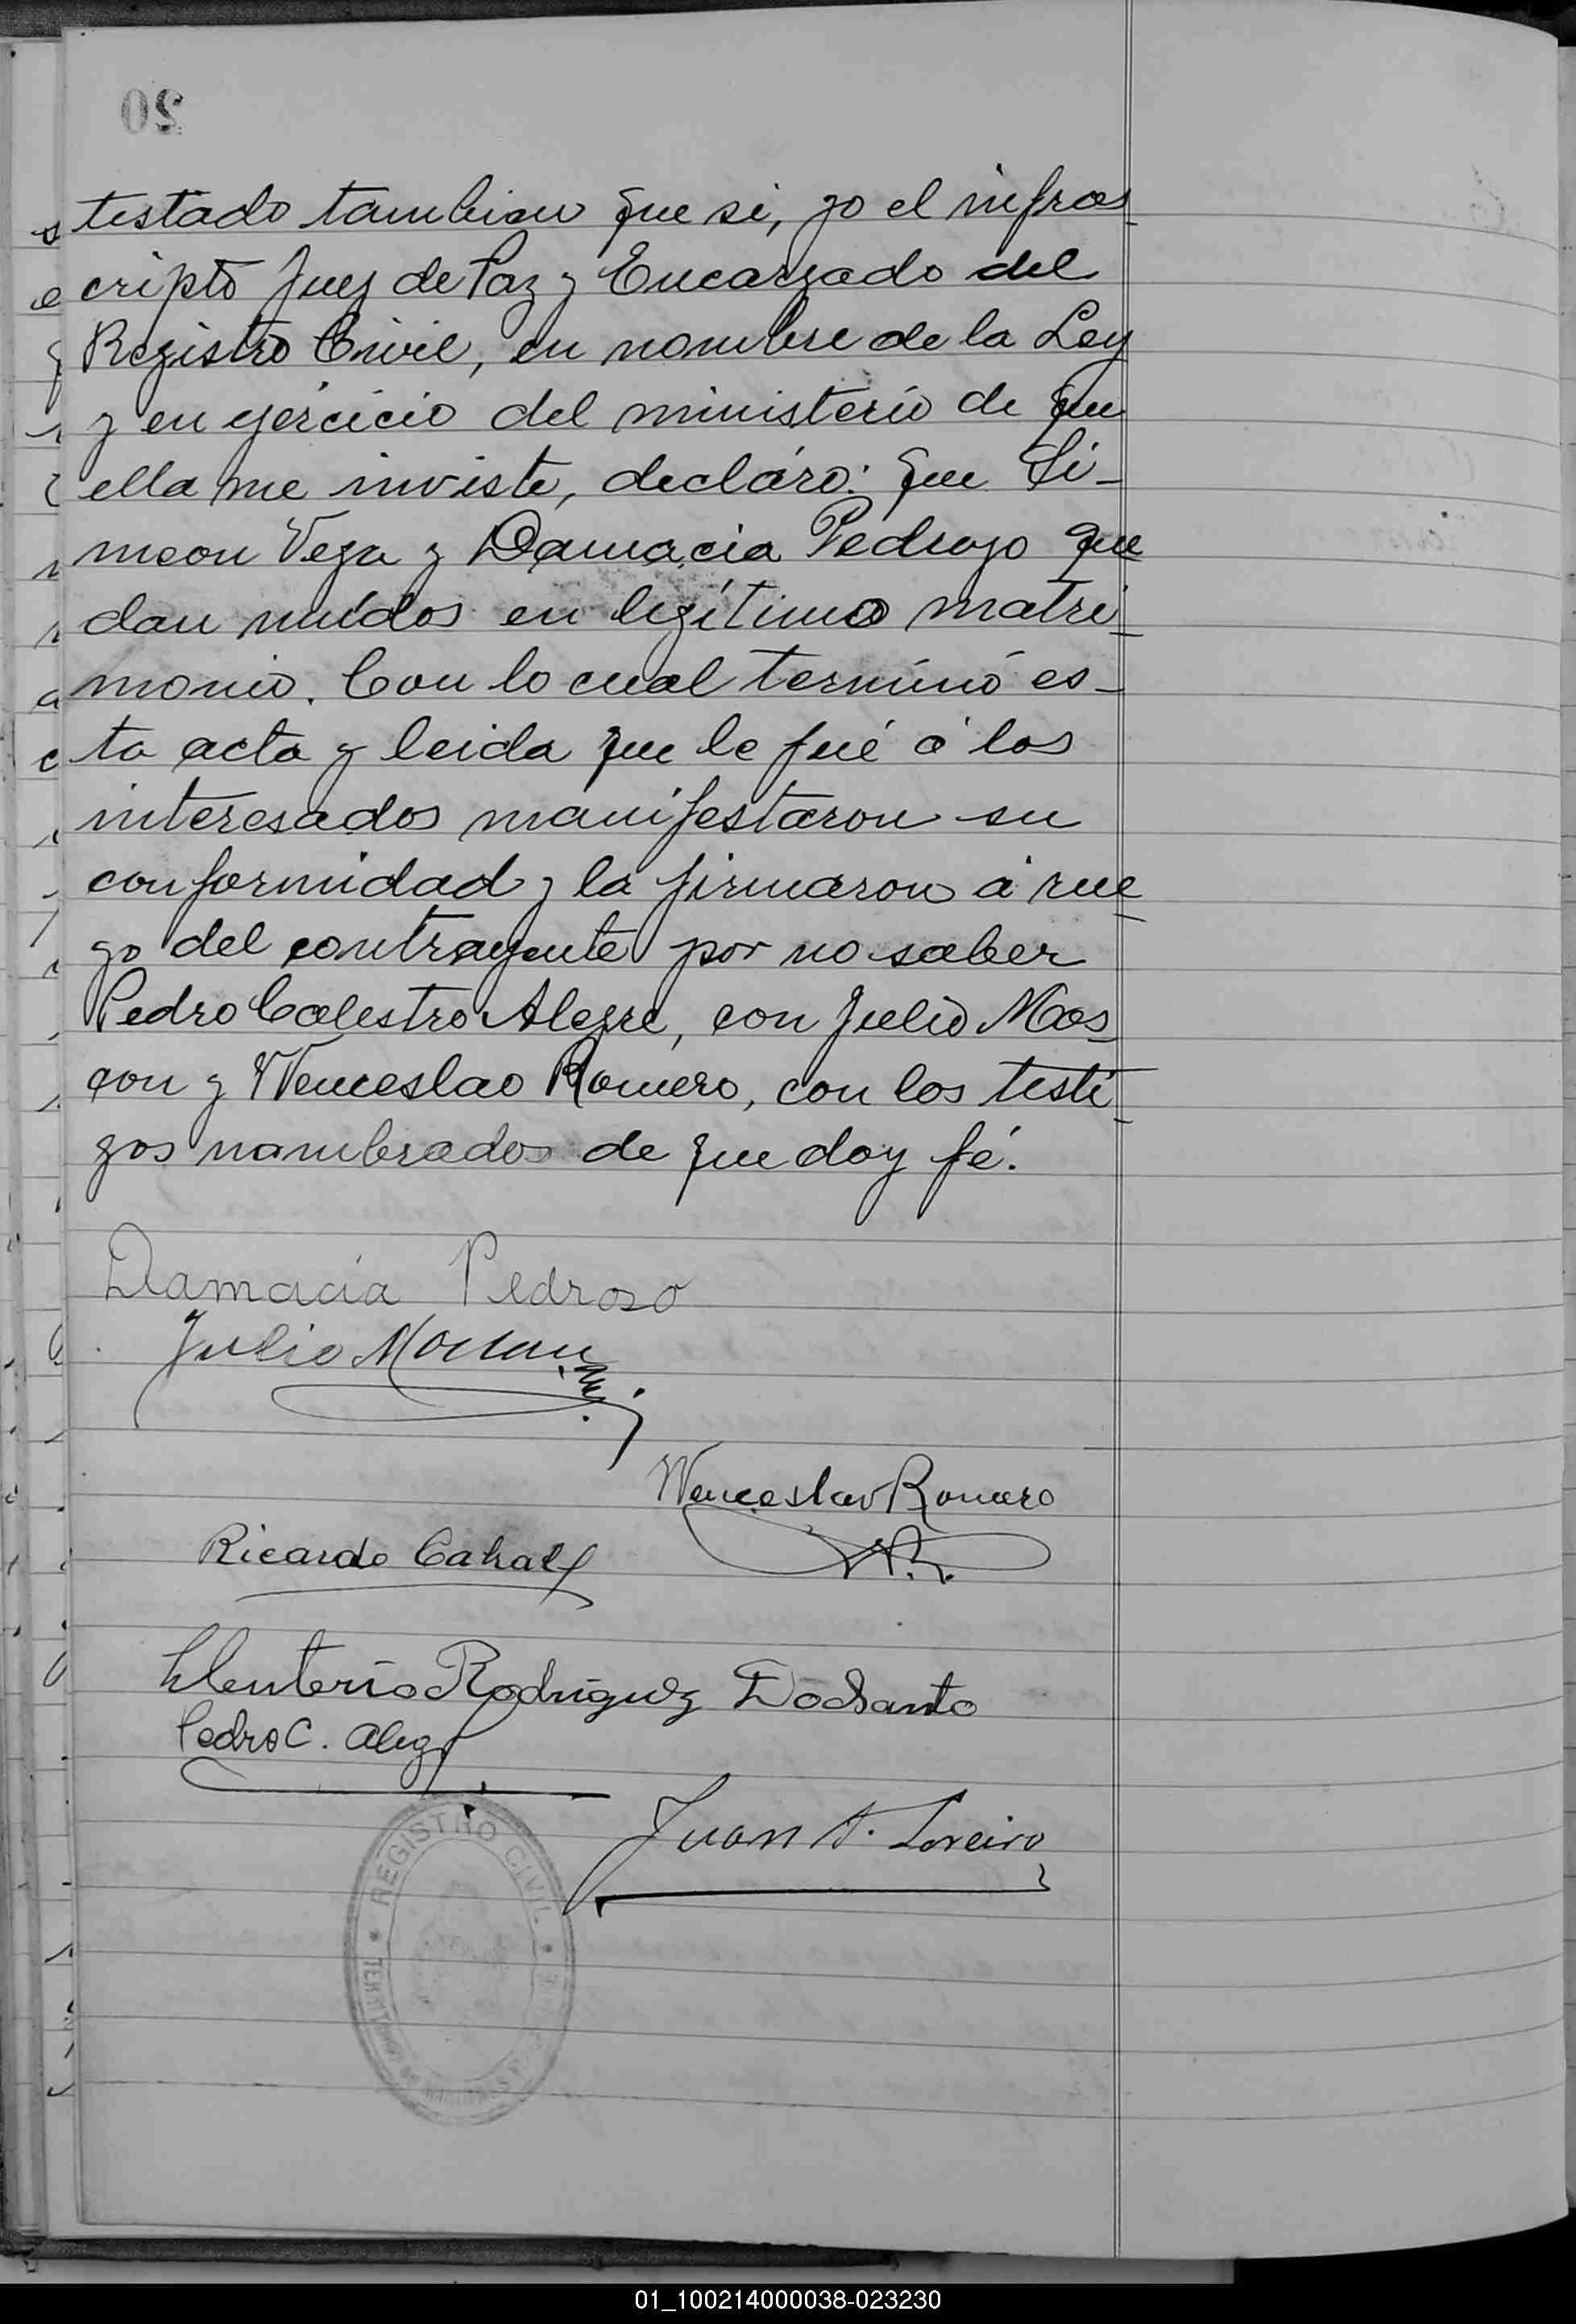 20
testado tambien que si, yo el infras
cripto Juez de Paz y Encargado del
Registro Civil, en nombre de la Ley
y en ejercicio del ministerio de que
ella me inviste, declaro: que Si-
meon Vega y Damacia Pedrozo que
dan unidos en legítimo matri
monio. Con lo cual terminó es-
ta acta y leida que le fué á los
interesados manifestaron su
conformidad y la firmaron á rue
go del contrayente por no saber
Pedro Calestro Alegre, con Julio Mos
con y Wenceslao Romero, con los testi
gos nombrados de que doy fé.
Damacia Pedroso
Julio
Wenceslao Romero
Ricardo Cabral
Eleuterio Rodriguez DoSanto
Pedro C. Aleg
Juan A. Loreiro
REGISTRO CIVIL
01_100214000038-023230